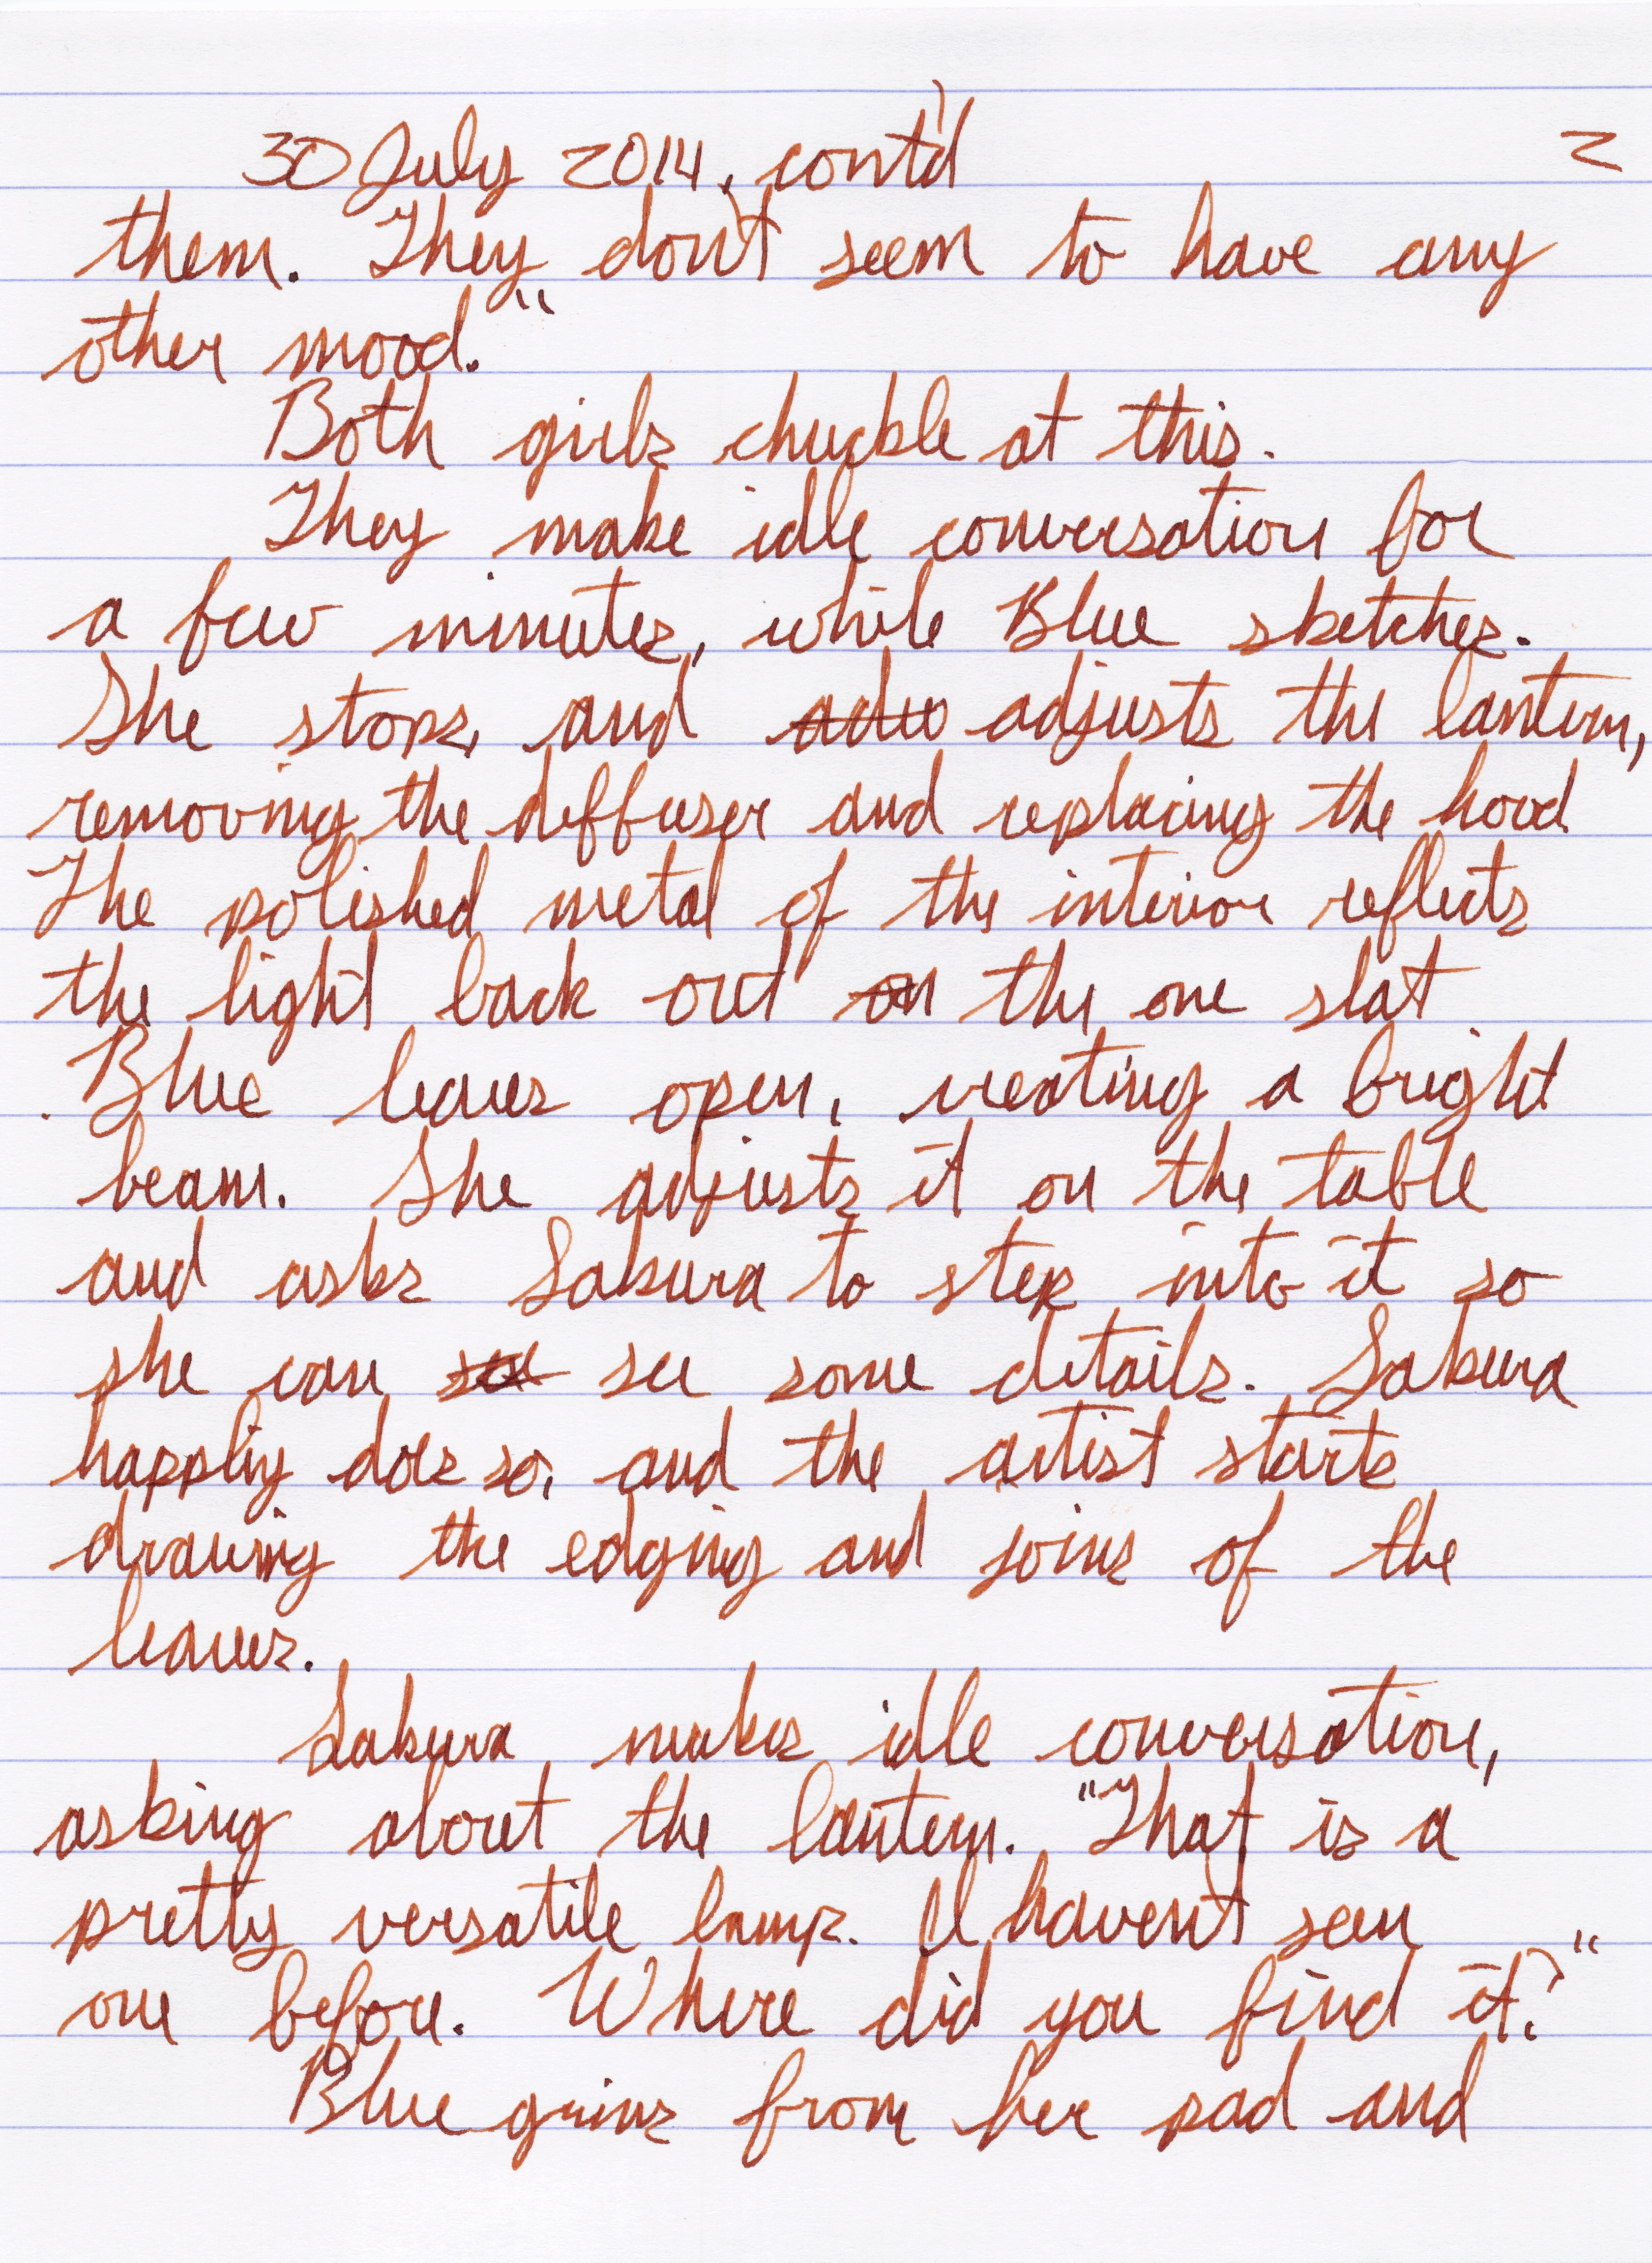 30 July 2014, cont'd 2
them. They don't seem to have any
other mood."
Both girls chuckle at this.
They make idle conversation for
a few minutes, while Blue sketches.
She stops, and adju adjusts the lantern,
removing the diffuser and replacing the hood.
The polished metal of the interior reflects
the light back out on the one slat
Blue leaves open, creating a bright
beam. She adjusts it on the table
and asks Sakura to step into it so
she can see some details. Sakura
happily does so, and the artist starts
drawing the edging and joins of the
leaves.
Sakura makes idle conversation,
asking about the lantern. "That is a
pretty versatile lamp. I haven't seen
one before. Where did you find it?"
Blue grins from her pad and